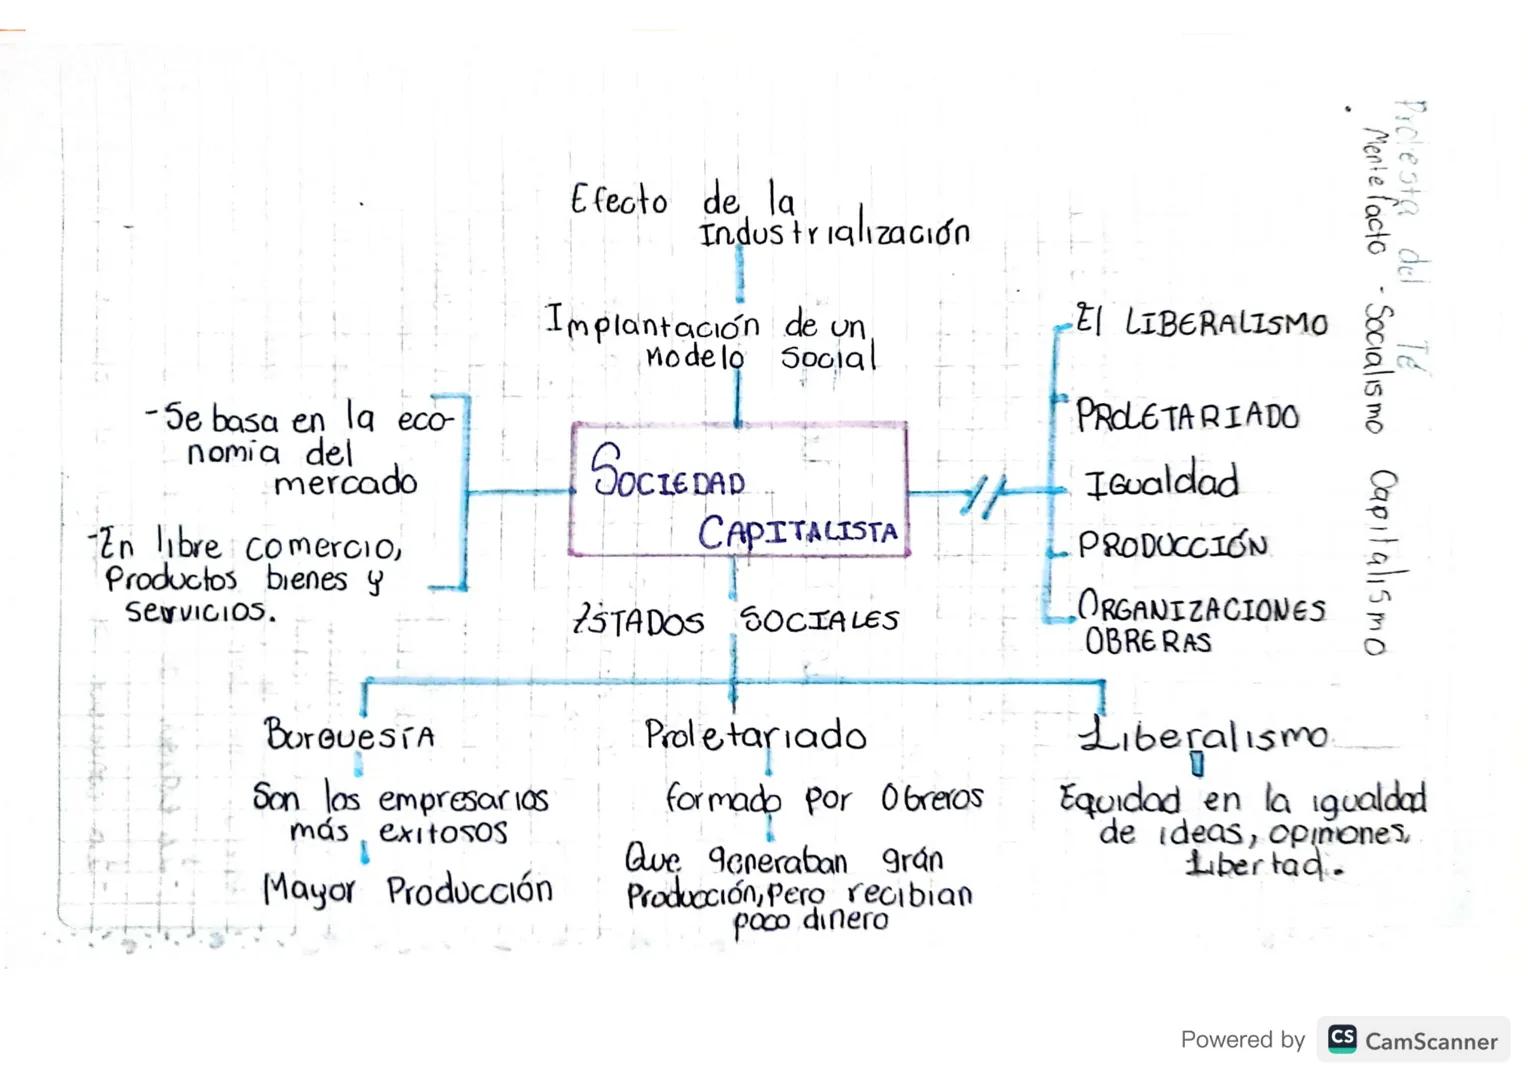 Efecto de la
Industrialización
Implantación de un
Modelo Social
-Se basa en la eco-
nomia del
mercado
-En libre comercio,
Productos bienes y
servicios.
SOCIEDAD
CAPITALISTA
El LIBERALISMO
PROLETARIADO
Igualdad
PRODUCCIÓN
ORGANIZACIONES
OBRERAS
ESTADOS SOCIALES
Burguesía
Son los empresarios
más exitosos
Mayor Producción
Proletariado
formado por Obreros
Que generaban grán
Producción, Pero recibian
poco dinero
Liberalismo
Equidad en la igualdad
de ideas, opiniones,
Libertad.
del Té
Mentefacto - Socialismo Capitalismo
Powered by CS CamScanner